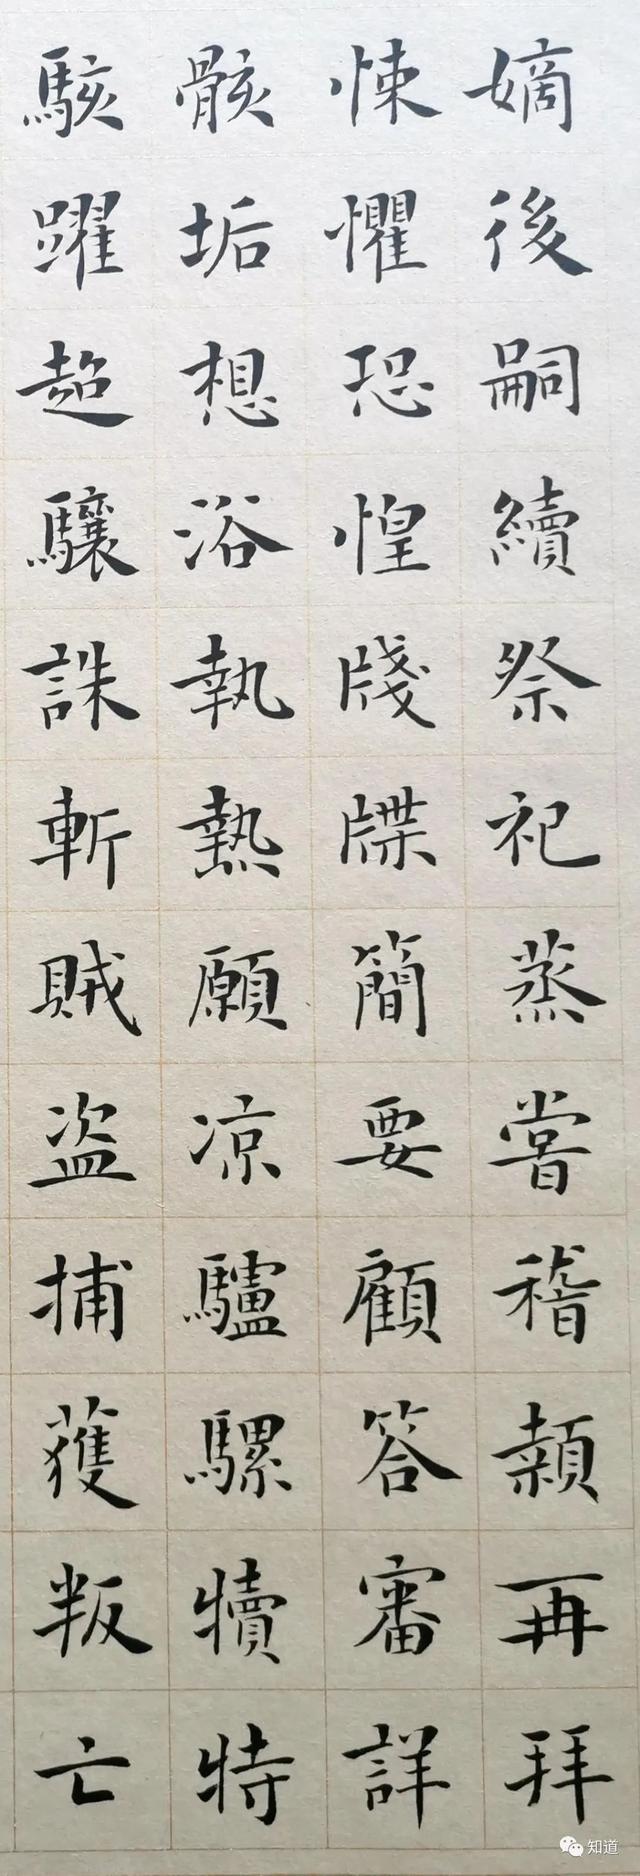 嫡後嗣續祭祀蒸嘗稽顙再拜
悚懼恐惶牋牒簡要顧答審詳
骸垢想浴執熱願凉驢騾犢特
駭躍超驤誅斬賊盗捕獲叛亡
知道